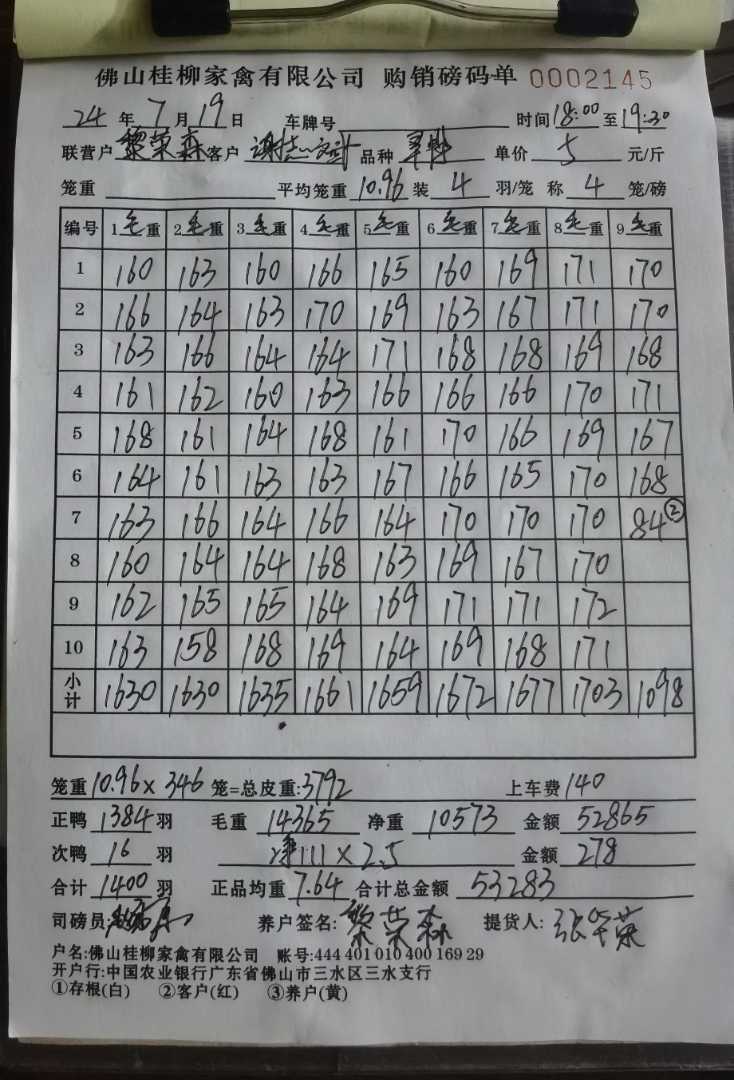 佛山桂柳家禽有限公司 购销磅码单 0002145
24 年 7 月 19 日 车牌号 时间 18:00 至 19:30
联营户 黎荣森 客户 品种 单价 5 元/斤
笼重 平均笼重 10.96 装 4 羽/笼 称 4 笼/磅
编号 1毛重 2毛重 3毛重 4毛重 5毛重 6毛重 7毛重 8毛重 9毛重
1 160 163 160 166 165 160 169 171 170
2 166 164 163 170 169 163 167 171 170
3 163 166 164 164 171 168 168 169 168
4 161 162 160 163 166 166 166 170 171
5 168 161 164 168 161 170 166 169 167
6 164 161 163 163 167 166 165 170 168
7 163 166 164 166 164 170 170 170 84②
8 160 164 164 168 163 169 167 170
9 162 165 165 164 169 171 171 172
10 163 158 168 169 164 169 168 171
小计 1630 1630 1635 1661 1659 1672 1677 1703 1098
笼重 10.96 × 346 笼=总皮重:3792 上车费 140
正鸭 1384 羽 毛重 14365 净重 10573 金额 52865
次鸭 16 羽 净111 × 2.5 金额 278
合计 1400 羽 正品均重 7.64 合计总金额 53283
司磅员: 养户签名: 黎荣森 提货人: 张华荣
户名:佛山桂柳家禽有限公司 账号:444 401 010 400 169 29
开户行:中国农业银行广东省佛山市三水区三水支行
①存根(白) ②客户(红) ③养户(黄)